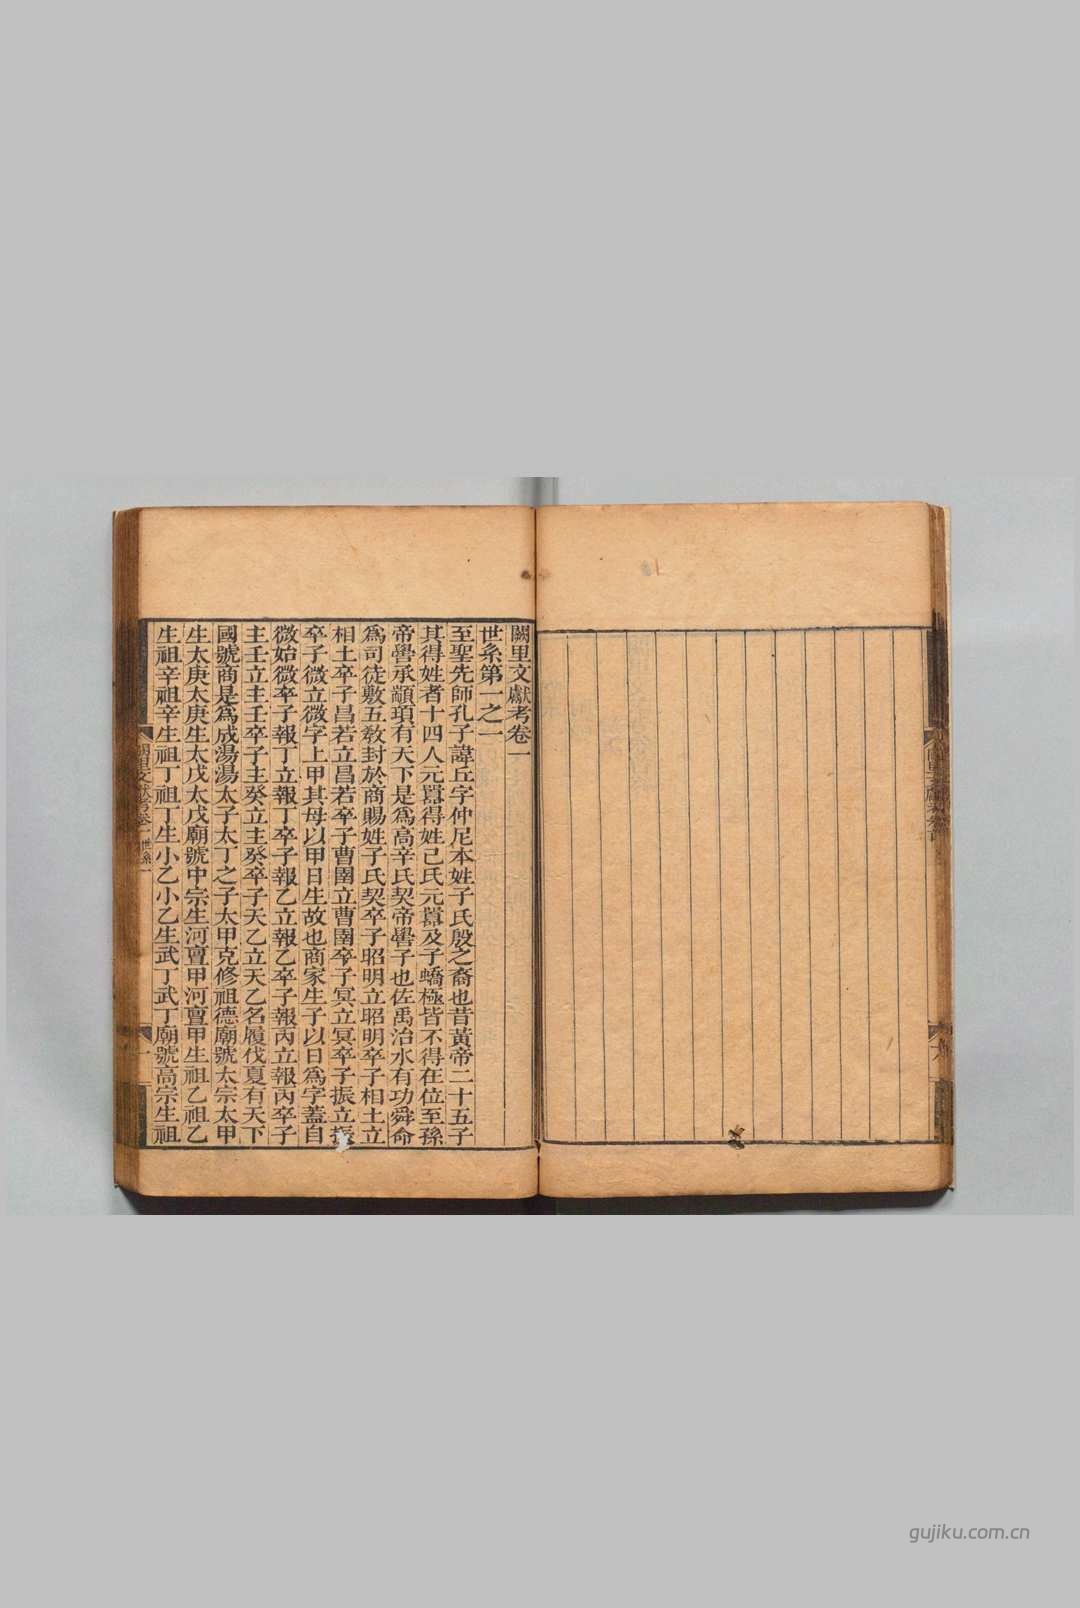 闕里文獻考卷一
世系第一之一
至聖先師孔子諱丘字仲尼本姓子氏殷之裔也昔黃帝二十五子
其得姓者十四人元囂得姓己氏元囂及子蟜極皆不得在位至孫
帝嚳承顓頊有天下是爲高辛氏契帝嚳子也佐禹治水有功舜命
爲司徒敷五敎封於商賜姓子氏契卒子昭明立昭明卒子相土立
相土卒子昌若立昌若卒子曹圉立曹圉卒子冥立冥卒子振立振
卒子微立微字上甲其母以甲日生故也商家生子以日爲字蓋自
微始微卒子報丁立報丁卒子報乙立報乙卒子報丙立報丙卒子
主壬立主壬卒子主癸立主癸卒子天乙立天乙名履伐夏有天下
國號商是爲成湯湯太子太丁之子太甲克修祖德廟號太宗太甲
生太庚太庚生太戊太戊廟號中宗生河亶甲河亶甲生祖乙祖乙
生祖辛祖辛生祖丁祖丁生小乙小乙生武丁武丁廟號高宗生祖
闕里文獻考卷一 世系 一
gujiku.com.cn